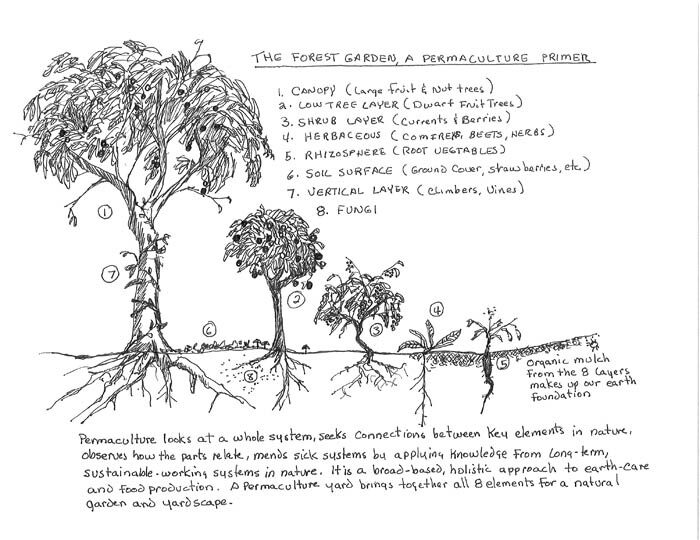 THE FOREST GARDEN, A PERMACULTURE PRIMER
1. CANOPY (Large fruit & Nut trees)
2. LOW TREE LAYER (Dwarf Fruit Trees)
3. SHRUB LAYER (Currents & Berries)
4. HERBACEOUS (COMFREYS, BEETS, HERBS)
5. RHIZOSPHERE (ROOT VEGTABLES)
6. SOIL SURFACE (Ground Cover, strawberries, etc.)
7. VERTICAL LAYER (Climbers, Vines)
8. FUNGI
1
7
2
6
3
4
8
5
Organic mulch
from the 8 layers
makes up our earth
foundation
Permaculture looks at a whole system, seeks connections between key elements in nature,
observes how the parts relate, mends sick systems by applying knowledge from long-term,
sustainable-working systems in nature. It is a broad-based, holistic approach to earth-care
and food production. A Permaculture yard brings together all 8 elements for a natural
garden and yardscape.